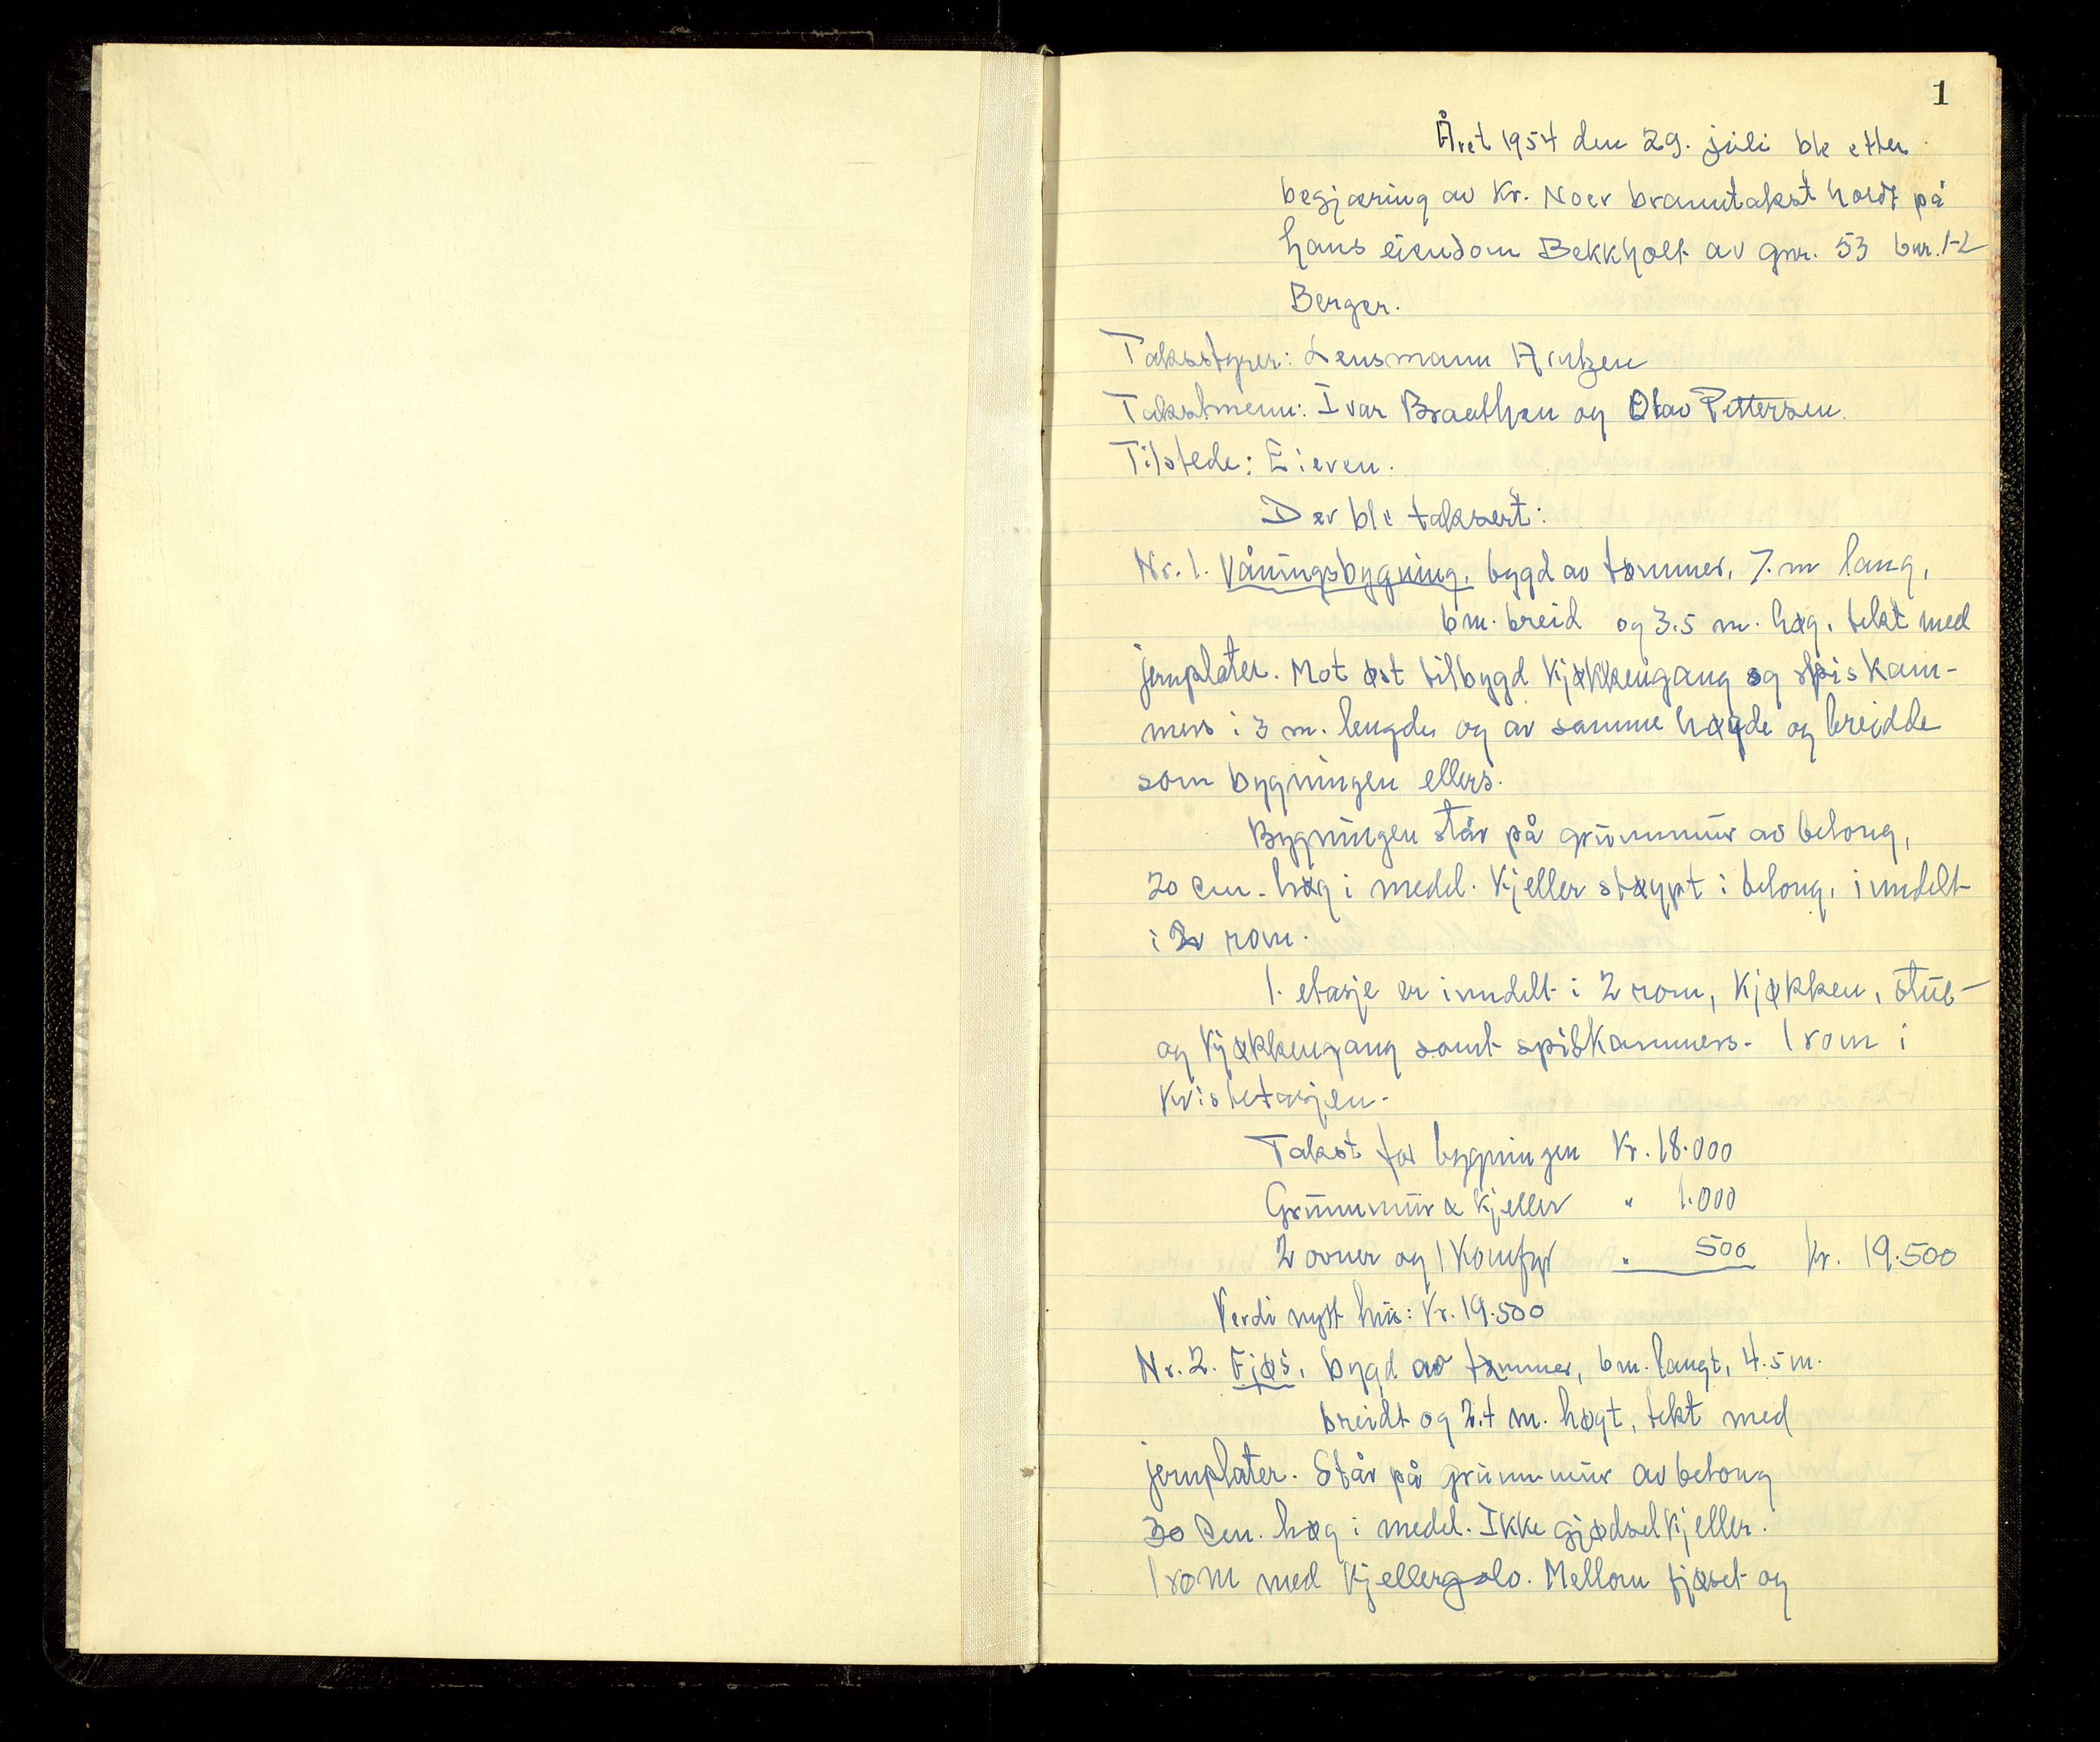 1
Året 1954 den 29. juli ble etter
begjæring av Kr. Noer branntakst holdt på
hans eiendom Bekkholt av gnr. 53 bnr. 1-2
Berger.
Takststyrer: Lensmann Arntzen
Takstmenn: Ivar Braathen og Olav Pettersen.
Tilstede: Eieren.
Der ble taksert:
Nr. 1. Våningsbygning, bygd av tømmer, 7. m lang,
6 m. breid og 3.5 m. høg, tekt med
jernplater. Mot øst tilbygd kjøkkengang og spiskam-
mers i 3 m. lengde og av samme høgde og breidde
som bygningen ellers.
Bygningen står på grunnmur av betong,
20 cm. høg i medel. Kjeller støypt i betong, inndelt
i 2 rom.
1. etasje er inndelt i 2 rom, kjøkken, stue
og kjøkkengang samt spiskammers. 1 rom i
kvistetasjen.
Takst for bygningen Kr. 18.000
Grunnmur & kjeller " 1.000
2 ovner og 1 komfyr " 500 Kr. 19.500
Verdi nytt hus: Kr. 19.500
Nr. 2. Fjøs, bygd av tømmer, 6 m. langt, 4.5 m.
breidt og 2.4 m. høgt, tekt med
jernplater. Står på grunnmur av betong
30 cm. høg i medel. Ikke gjødselkjeller.
1 rom med kjellergolv. Mellom fjøset og